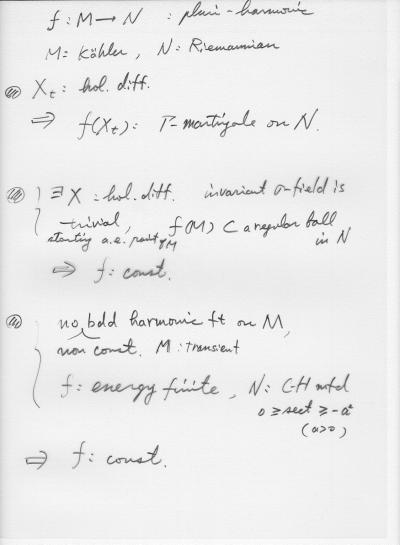 f : M → N : pluri-harmonic
M = Kähler, N : Riemannian
X_t : hol. diff.
⇒ f(X_t) : Γ-martingale on N.
∃ X : hol. diff. invariant σ-field is
trivial, f(M) ⊂ a regular ball
starting a.e. point of M in N
⇒ f : const.
no bdd harmonic ft on M,
non const. M : transient
f : energy finite, N : C-H mfd
0 ≥ sect ≥ -a²
(a>0)
⇒ f : const.